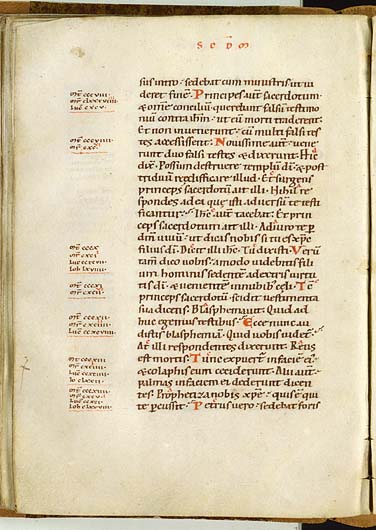 SCDM
sus intro · sedebat cum ministris ut vi
deret finē · Principes aūt sacerdotum ·
& omne concilium · querebant falsū testimo
niū contra ihm̄ · ut eū morti traderent ·
Et non invenerunt · cū multi falsi tes
tes accessissent · Novissime aūt · vene
runt duo falsi testes · & dixerunt · Hic
dix̄ · Possum destruere templū dī · & post
triduū reedificare illud · Et surgens
princeps sacerdotū ait illi · Nihil re
spondes ad ea que isti adversū te testi
ficantur · Ihc̄ aūt tacebat · Et prin
ceps sacerdotum ait illi · Adjuro te p
dm̄ vivū · ut dicas nobis si tu es xp̄c
filius dī · Dicit illi ihc̄ · Tu dixisti · Verū
tam̄ dico vobis · amodo videbitis fili
um hominis sedentē a dextris virtu
tis dī · & venientē in nubib; celi · Tc̄
princeps sacerdotū · scidit vestimenta
sua dicens · Blasphemavit · Quid ad
huc egemus testibus · Ecce nunc au
distis blasphemiā · Quid vobis videt̄ ·
At illi respondentes dixerunt · Reus
est mortis · Tunc expuerꝉ in faciē ei·
& colaphis eum ceciderunt · Alii aūt ·
palmas in faciem ei dederunt dicen
tes · Prophetiza nobis xp̄e · quis ē qui
te percussit · Petrus vero · sedebat foris